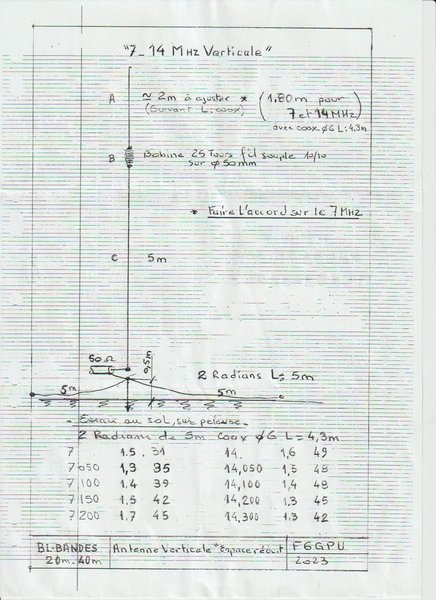 "7_14 MHz Verticale"
A ≃ 2m à ajuster * (1,80m pour
(Suivant L: coax) 7 et 14 MHz)
avec coax ø6 L: 4,3m
B Bobine 25 Tours fil souple 10/10
sur ø 50mm
* Faire L'accord sur le 7 MHz
C 5m
50 Ω 0,5m
2 Radians L: 5m
5m 5m
Essai au sol, sur pelouse.
2 Radians de 5m coax ø6 L = 4,3m
7 1.5 . 31 14. 1,6 49
7 050 1,3 35 14,050 1,5 48
7 100 1.4 39 14,100 1,4 48
7 150 1.5 42 14,200 1,3 45
7 200 1.7 45 14,300 1.3 42
BI-BANDES Antenne Verticale "Espace réduit" F6GPU
20m-40m 2023